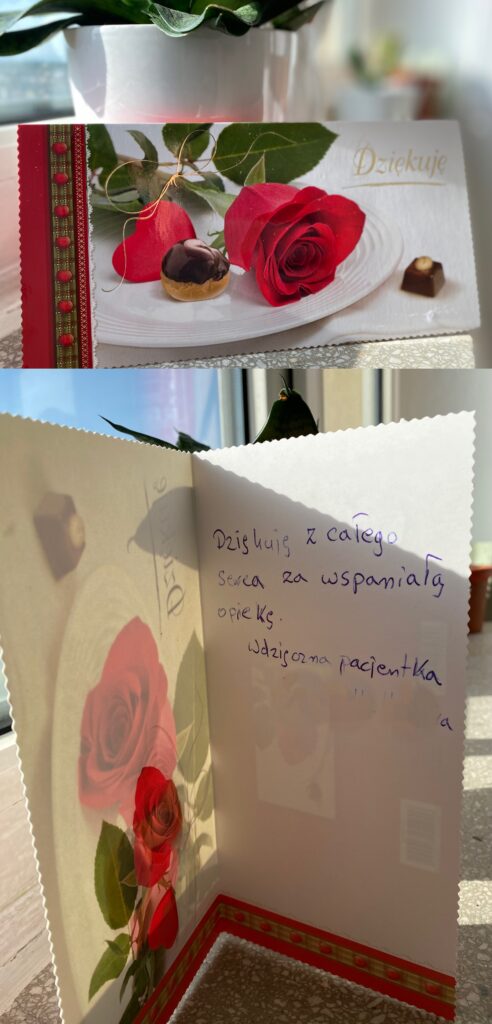 Dziękuję
Dziękuję z całego
serca za wspaniałą
opiekę.
Wdzięczna pacjentka